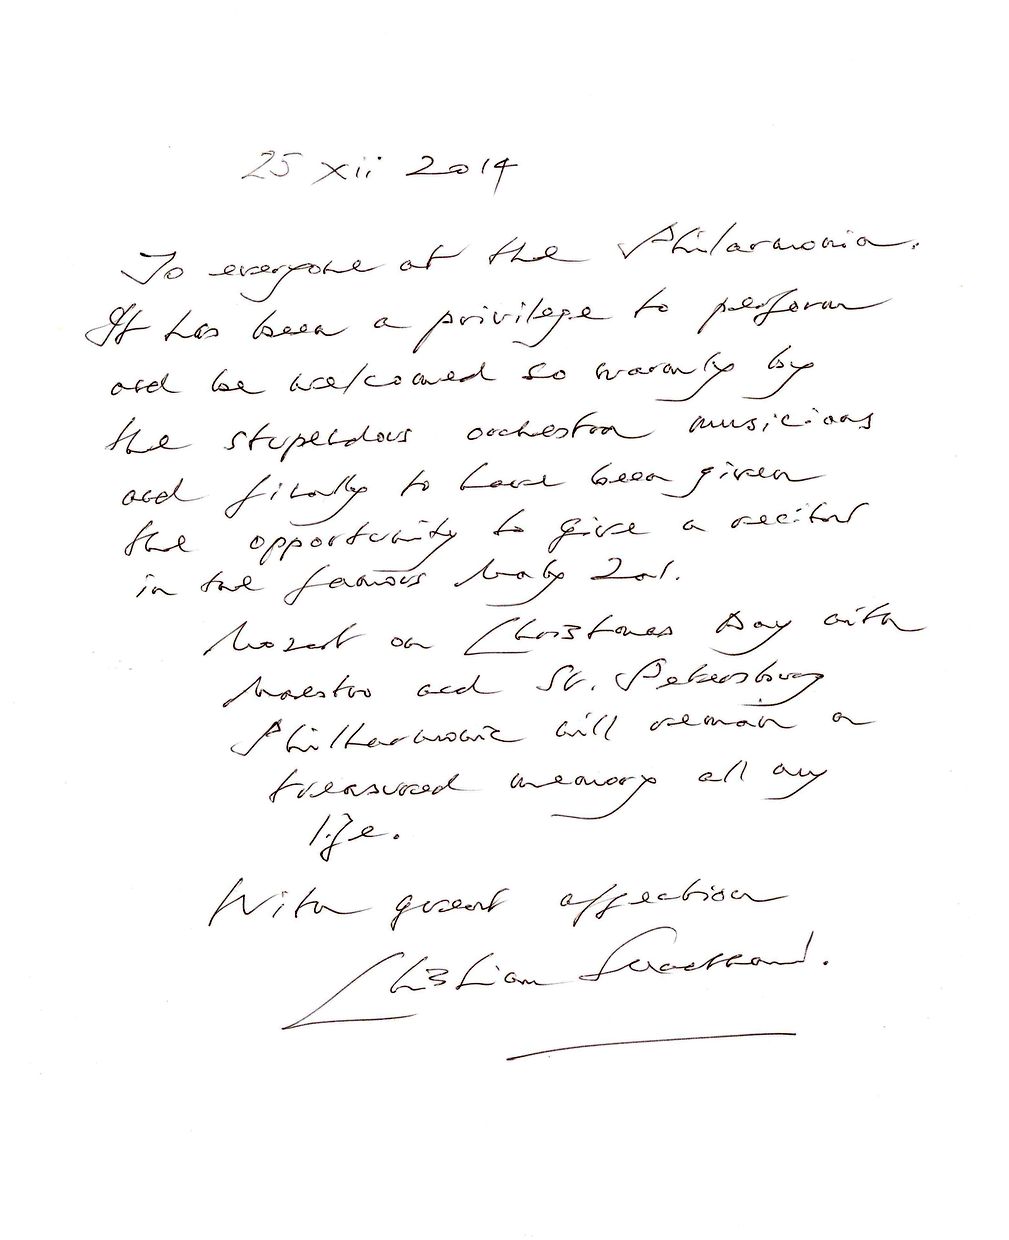 25 xii 2014
To everyone at the Philarmonia.
It has been a privilege to perform
and be welcomed so warmly by
the stupendous orchestra musicians
and finally to have been given
the opportunity to give a recital
in the famous Maly Zal.
Mozart on Christmas Day with
Maestro and St. Petersburg
Philharmonic will remain a
treasured memory all my
life.
With great affection
Christian